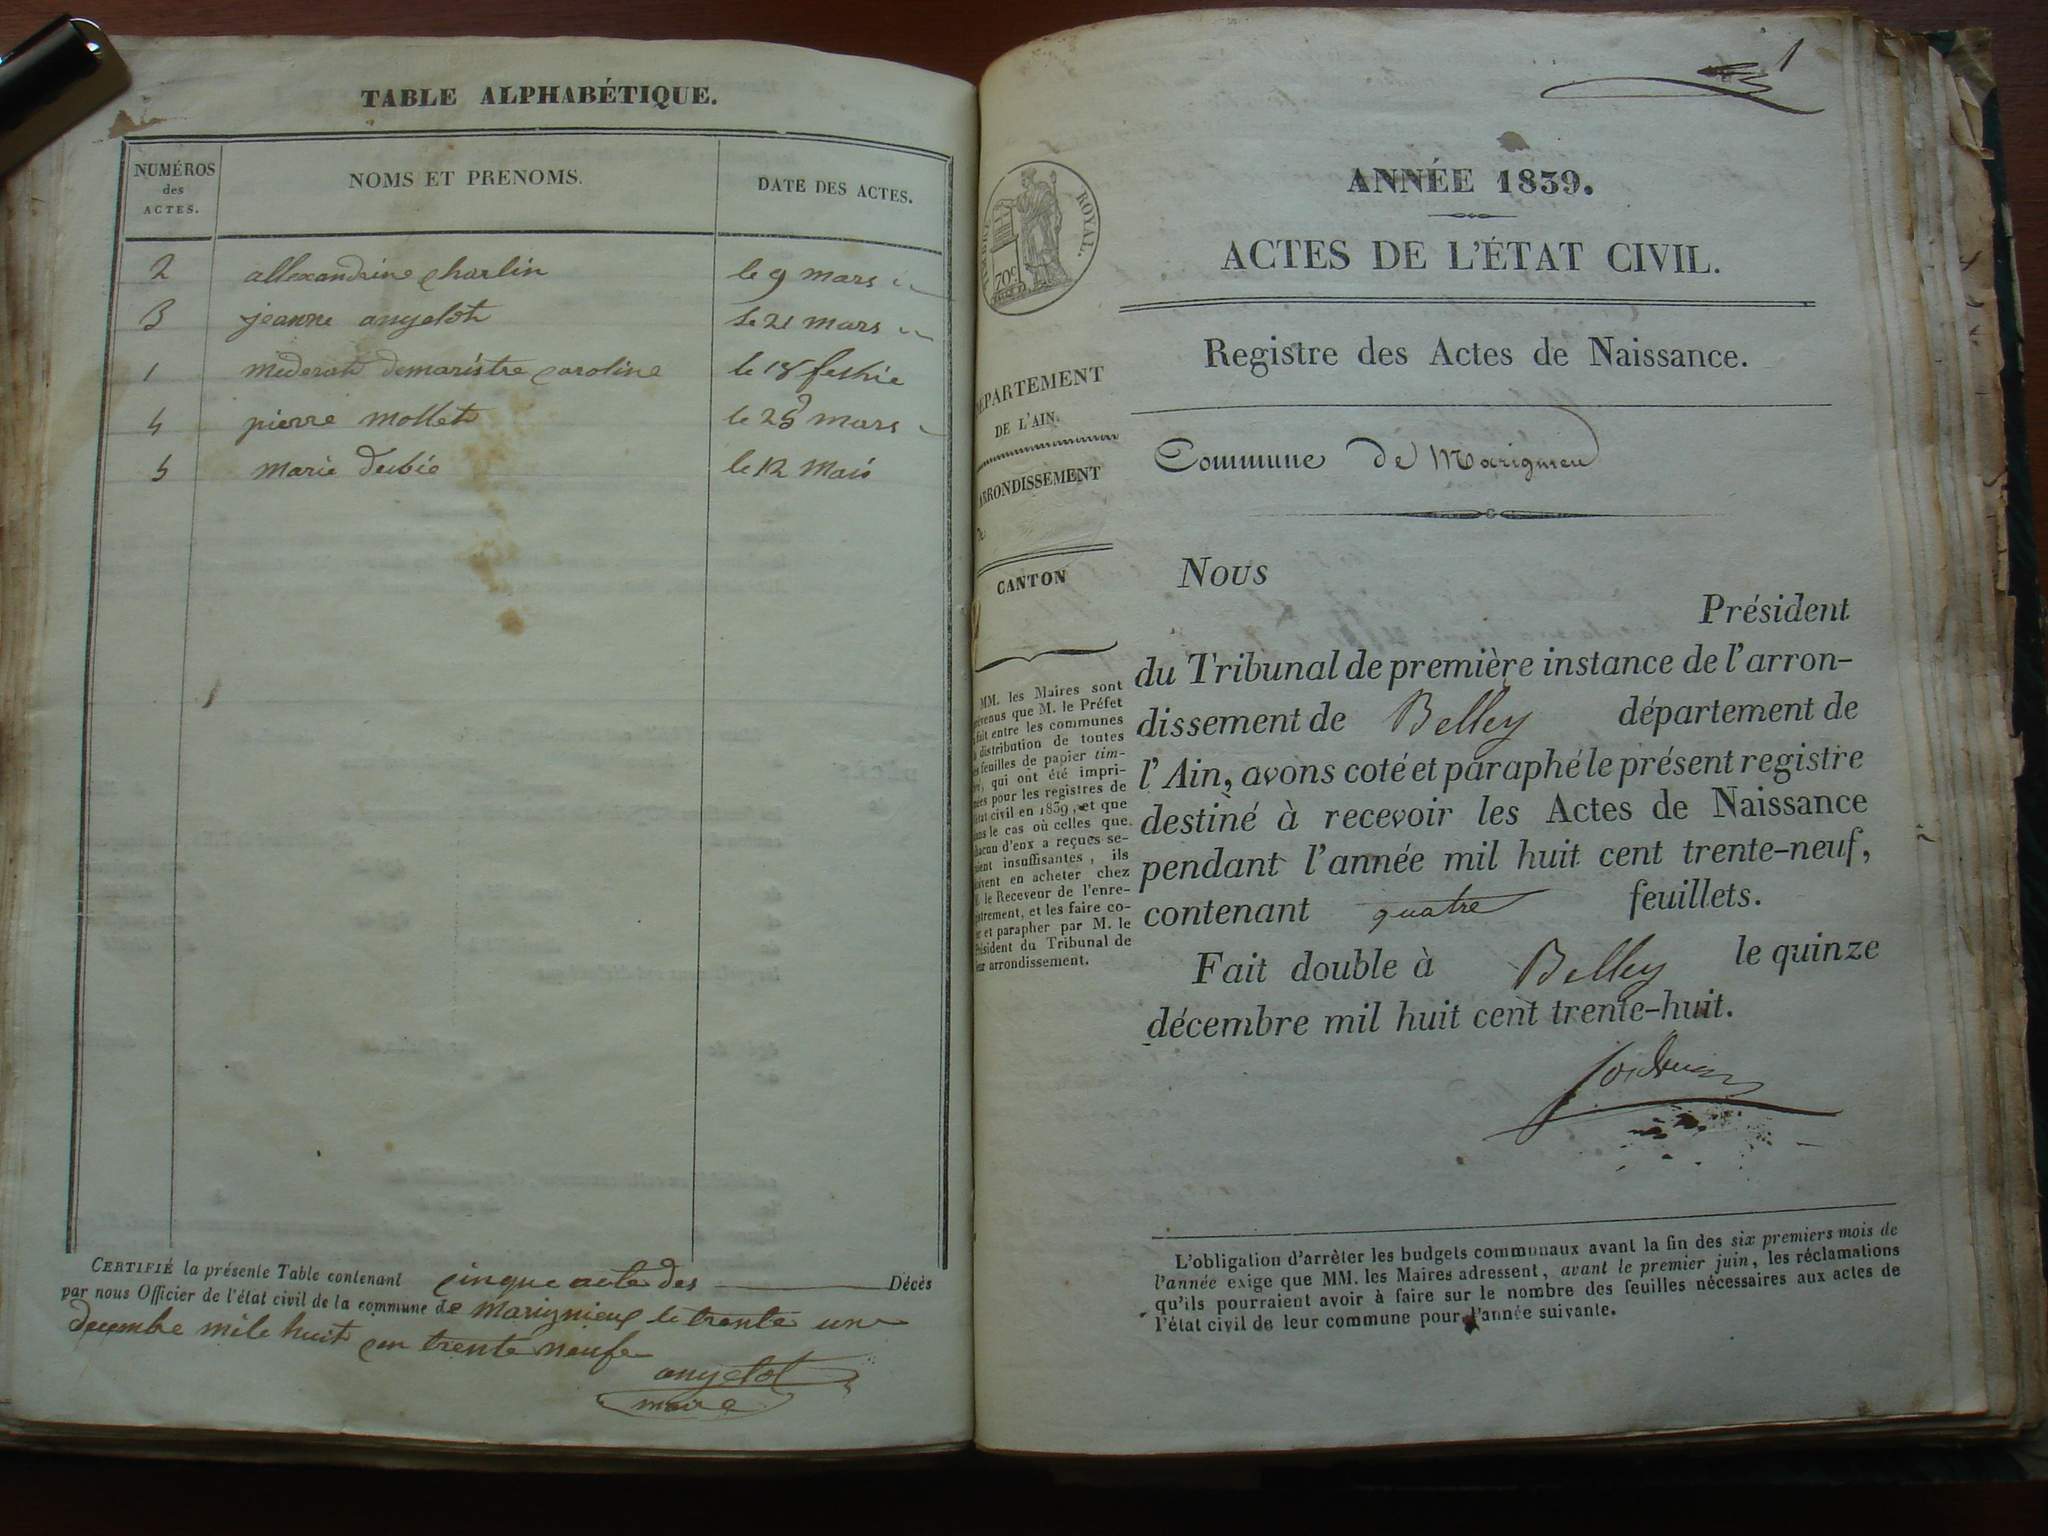 TABLE ALPHABÉTIQUE.
NUMÉROS des ACTES.
NOMS ET PRENOMS.
DATE DES ACTES.
2 allexandrine charlin le 9 mars
3 jeanne angelot le 21 mars
1 demaristre caroline le 18
4 pierre mollet le 25 mars
5 marie le 12 mais
CERTIFIÉ la présente Table contenant cinque acte des Décès
par nous Officier de l'état civil de la commune de marignieux le trente un
decembre mile huit cen trente neufe
angelot
maire
1
ANNÉE 1839.
ACTES DE L'ÉTAT CIVIL.
Registre des Actes de Naissance.
Commune de Marignieu
TIMBRE ROYAL.
70c
DÉPARTEMENT
DE L'AIN.
ARRONDISSEMENT
de
CANTON
MM. les Maires sont
prévenus que M. le Préfet
a fait entre les communes
la distribution de toutes
les feuilles de papier tim-
bré, qui ont été impri-
mées pour les registres de
l'état civil en 1839, et que
dans le cas où celles que
chacun d'eux a reçues se-
raient insuffisantes, ils
doivent en acheter chez
M. le Receveur de l'enre-
gistrement, et les faire co-
ter et parapher par M. le
Président du Tribunal de
leur arrondissement.
Nous
Président
du Tribunal de première instance de l'arron-
dissement de Belley département de
l'Ain, avons coté et paraphé le présent registre
destiné à recevoir les Actes de Naissance
pendant l'année mil huit cent trente-neuf,
contenant quatre feuillets.
Fait double à Belley le quinze
décembre mil huit cent trente-huit.
L'obligation d'arrêter les budgets communaux avant la fin des six premiers mois de
l'année exige que MM. les Maires adressent, avant le premier juin, les réclamations
qu'ils pourraient avoir à faire sur le nombre des feuilles nécessaires aux actes de
l'état civil de leur commune pour l'année suivante.